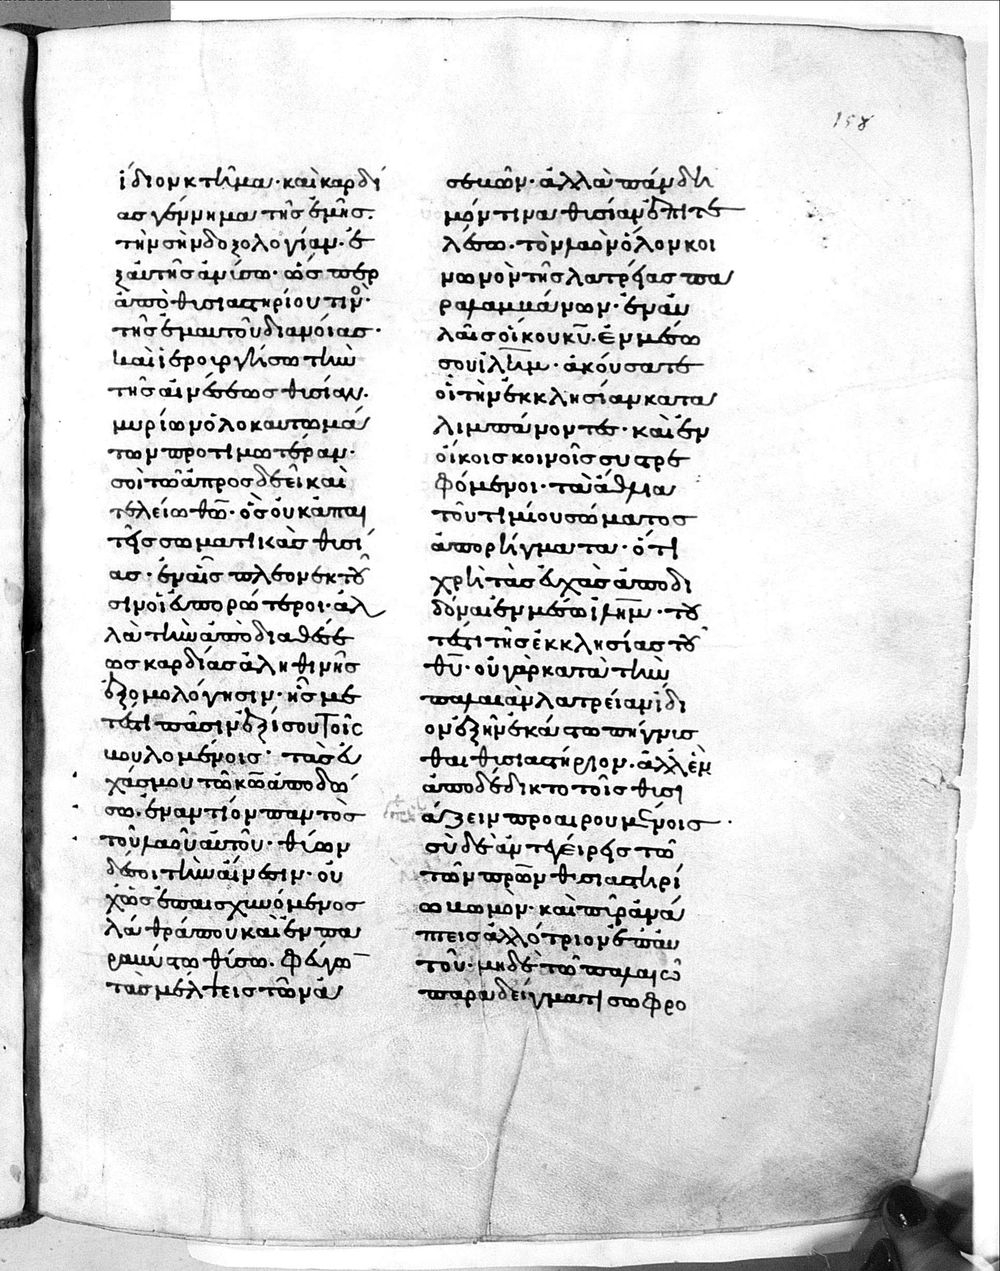 158
ἴδιον κτῆμα· καὶ καρδί
ας γέννημα τῆς ἐμῆς.
τὴν σὴν δοξολογίαν· ἐ
ξ αὐτῆς ἀνίσω· ὥσπερ
ἀπὸ θυσιαστηρίου τινὸ·
τῆς ἐμαυτοῦ διανοίας·
καὶ ἱερουργήσω τὴν
τῆς αἰνέσεως θυσίαν.
μυρίων ὁλοκαυτωμά
των προτιμωτέραν·
σοὶ τῶ ἀπροσδεεῖ καὶ
τελείω θῶ· ὃς οὐκ ἀπαι
τεῖς σωματικὰς θυσί
ας· ἐν αἷς πλεονεκτοῦ
σιν οἱ εὐπορώτεροι· ἀλ
λὰ τὴν ἀπὸ διαθέσε
ως καρδίας ἀληθινῆς
ἐξομολόγησιν· ἧς με
τέστι πᾶσιν ἐξίσου τοῖς
βουλομένοις· τὰς εὐ
χάς μου τῶ κῶ ἀποδώ
σω. ἐναντίον παντὸς
τοῦ λαοῦ αὐτοῦ· θύων
δέ σοι τὴν αἴνεσιν· οὐ
χ ὡς ἐπαισχυνόμενος
λάθρα που καὶ ἐν πα
ραβύστω θύσω. φεύγω
τὰς μελ τεις τῶν ἀ
σεβῶν· ἀλλὰ πάνδη
μόν τινα θυσίαν ἐπιτε
λέσω. τὸν λαὸν ὅλον κοι
νωνὸν τῆς λατρείας πα
ραλαμβάνων· ἐν αὐ
λαῖς οἴκου κῦ. ἐν μέσω
σου ἱλῆμ· ἀκούσατε
οἱ τὴν ἐκκλησίαν κατα
λιμπάνοντες· καὶ ἐν
οἴκοις κοινοῖς συστρε
φόμενοι· τὰ ἄθλια
τοῦ τιμίου σώματος
ἀπορρήγματα· ὅτι
χρὴ τὰς εὐχὰς ἀποδι
δόναι ἐν μέσω ἱλῆμ· του
τέστι τῆς ἐκκλησίας τοῦ
θῦ· οὐ γὰρ κατὰ τὴν
παλαιὰν λατρείαν ἴδι
ον ἐξῆν ἑκάστω πήγνυσ
θαι θυσιαστήριον· ἀλλ' ἓν
ἀπεδέδεικτο τοῖς θυσι
άζειν προαιρουμένοις·
σὺ δὲ ἀντεγείρεις τῶ
τῶν πρῶν θυσιαστηρί
ω βωμὸν· καὶ πῦρ ἀνά
πτεις ἀλλότριον ἑπαυ
τοῦ· μηδὲ τῶ παλαιῶ
παραδείγματι σωφρο